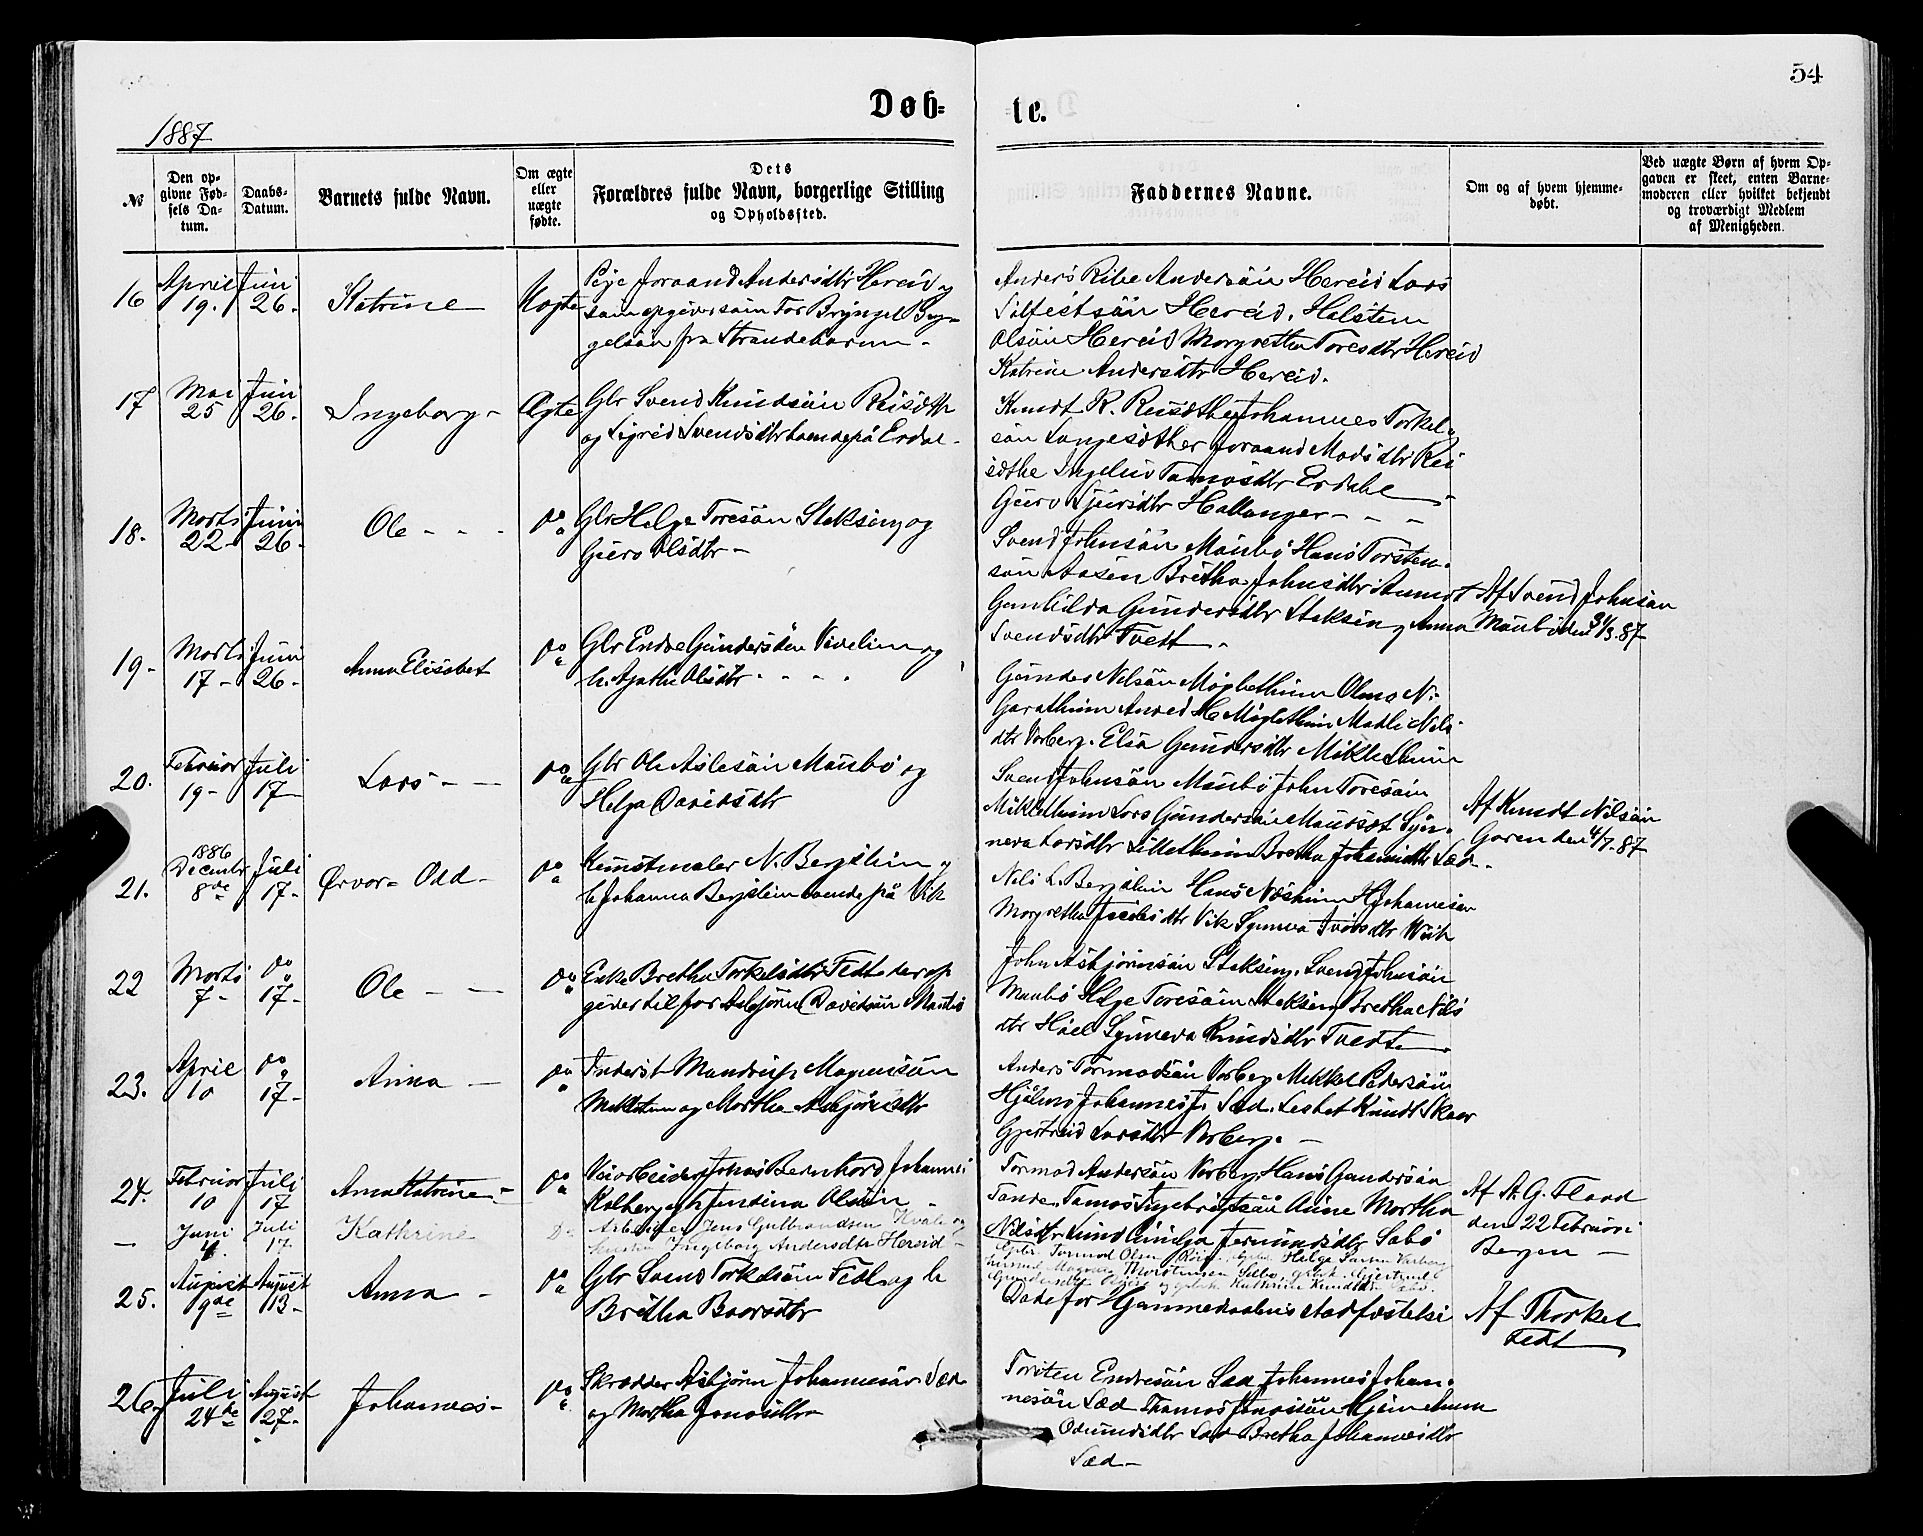 54
Døb=
te.
1887
№
Den op-
givne Fød-
sels Da-
tum.
Daabs-
Datum.
Barnets fulde Navn.
Om ægte
eller
uægte
fødte.
Dets
Forældres fulde Navn, borgerlige Stilling
og Opholdssted.
Faddernes Navne.
Om og af hvem hjemme-
døbt.
Ved uægte Børn af hvem Op-
gaven er skeet, enten Barne-
moderen eller hvilket bekjendt
og troværdigt Medlem
af Menigheden.
16
April
19.
Juni
26.
Katrine
Uægte
Pige Joraand Andersdtr Hereid og
som opgiver som Far Brynjel Bryn-
gelsön fra Strandebarm -
Anders Andersön Hereid Lars
Hereid. Halsten
Olsön Hereid Margretha Toresdtr Hereid
Katrine Andersdtr Hereid.
17
Mai
25
Juni
26.
Ingeborg -
Ægte
Gbr Svend Knudsön
og Sigrid Svendsdtr boende på Erdal -
Knudt K. Johannes Torkel-
sön Langesäther Joraand Madsdtr Rei
säthe Tomasdtr Erdahl
Guro Sjursdtr Hallanger - - -
18.
Marts
22
Juni
26.
Ole - - -
do
Gbr Helge Toresön Steksing og
Guro Olsdtr -
Svend Johnsön Maubö Hans Torsten-
sön Aasen Bretha Johnsdtr
Gunhilda Gundersdtr Steksin, Anna
Svendsdtr Tveit -
Af Svend Johnsön
Maubö den 31/3.87
19 -
Marts
17 -
Juni
26 -
Anna Elisabet
do
Gbr Endre Gundersön Vivelin og
h. Agatha Olsdtr - - - -
Gunder Nilsön Olmo N.
Garathun Nils
dtr Varberg. Elsa Gundersdtr Miklethun
20.
Februar
19 -
Juli
17
Lars - -
do
Gbr Ole Aslesön Maubö og
Helga Davidsdtr
Svend Johnsön Maubö John Toresön
Miklethun Lars Gundersön Maursät Syn-
neva Larsdtr Lillethun Bretha Johannisdtr Sæd -
Af Knudt Nilsön
Garen den 4/7.87
21.
1886
December
8de
Juli
17 -
Ørvar= Odd -
do
Kunstmaler N. Bergslien og
h Johanna Bergslien boende på Vik
Nils L. Bergslien Hans Næsheim H Johannesön
Margretha Vik Synneva Ivarsdtr Wiik
22
Marts
7 -
do
17 -
Ole - -
do
Enke Bretha Torkelsdtr Fedt der op
giver til far Asbjörn Davidsön Maubö
John Asbjörnsön Steksing. Svend Johnsön
Maubö Helge Toresön Steksing Bretha Nils
dtr Hæl Synneva Knudsdtr Tvedt
23.
April
10
do
17 -
Anna -
do
Inderst Mandrup Magnusön
og Martha Asbjörnsdtr
Anders Tormodsön Varberg Mikkel Pedersön
Hjölmo Johannes J. Sæd. Lisbet Knudt Skaar
Gjertrud Larsdtr Varberg. -
24.
Februar
10
Juli
17
Anna Katrine -
do
Veiarbeider Johas Bernhard Johannes
Kolberg og h Jensina Olsön -
Tormod Andersön Varberg Hans Gundersön
Tande. Tomas Ingebrigtsön Aune Martha
Nilsdtr Lund Jermundsdtr Sabö
Af A. G. Flaad
den 22 Februar
Bergen -
-
Juni
4.
Juli
17
Kathrine
Do
Arbeider Jens Gulbrandsen Kvåle og
hustru Ingeborg Andersdtr Hereid -
Tormod Olsen Helge Larsen Varberg
Magnus Thorstensen Sæbø, Gjertrud
Gundersdtr Kathrine Knudsdtr
25.
August
9de
August
13 -
Anna -
do
Gbr Svend Torkelsön Fedt og h
Bretha Baarsdtr
Döde för Hjemmedaabens stadfæstelse
Af Thorkel
Fedt
26.
Juli
24de
August
27 -
Johannes -
do
Skrædder Asbjörn Johannesön Sæd
og Martha Jonasdtr
Torsten Endresön Sæd Johannes Johan-
nesön Sæd Thomas Jonasön
Odmundsdtr Sæd Bretha Johannesdtr
Sæd -